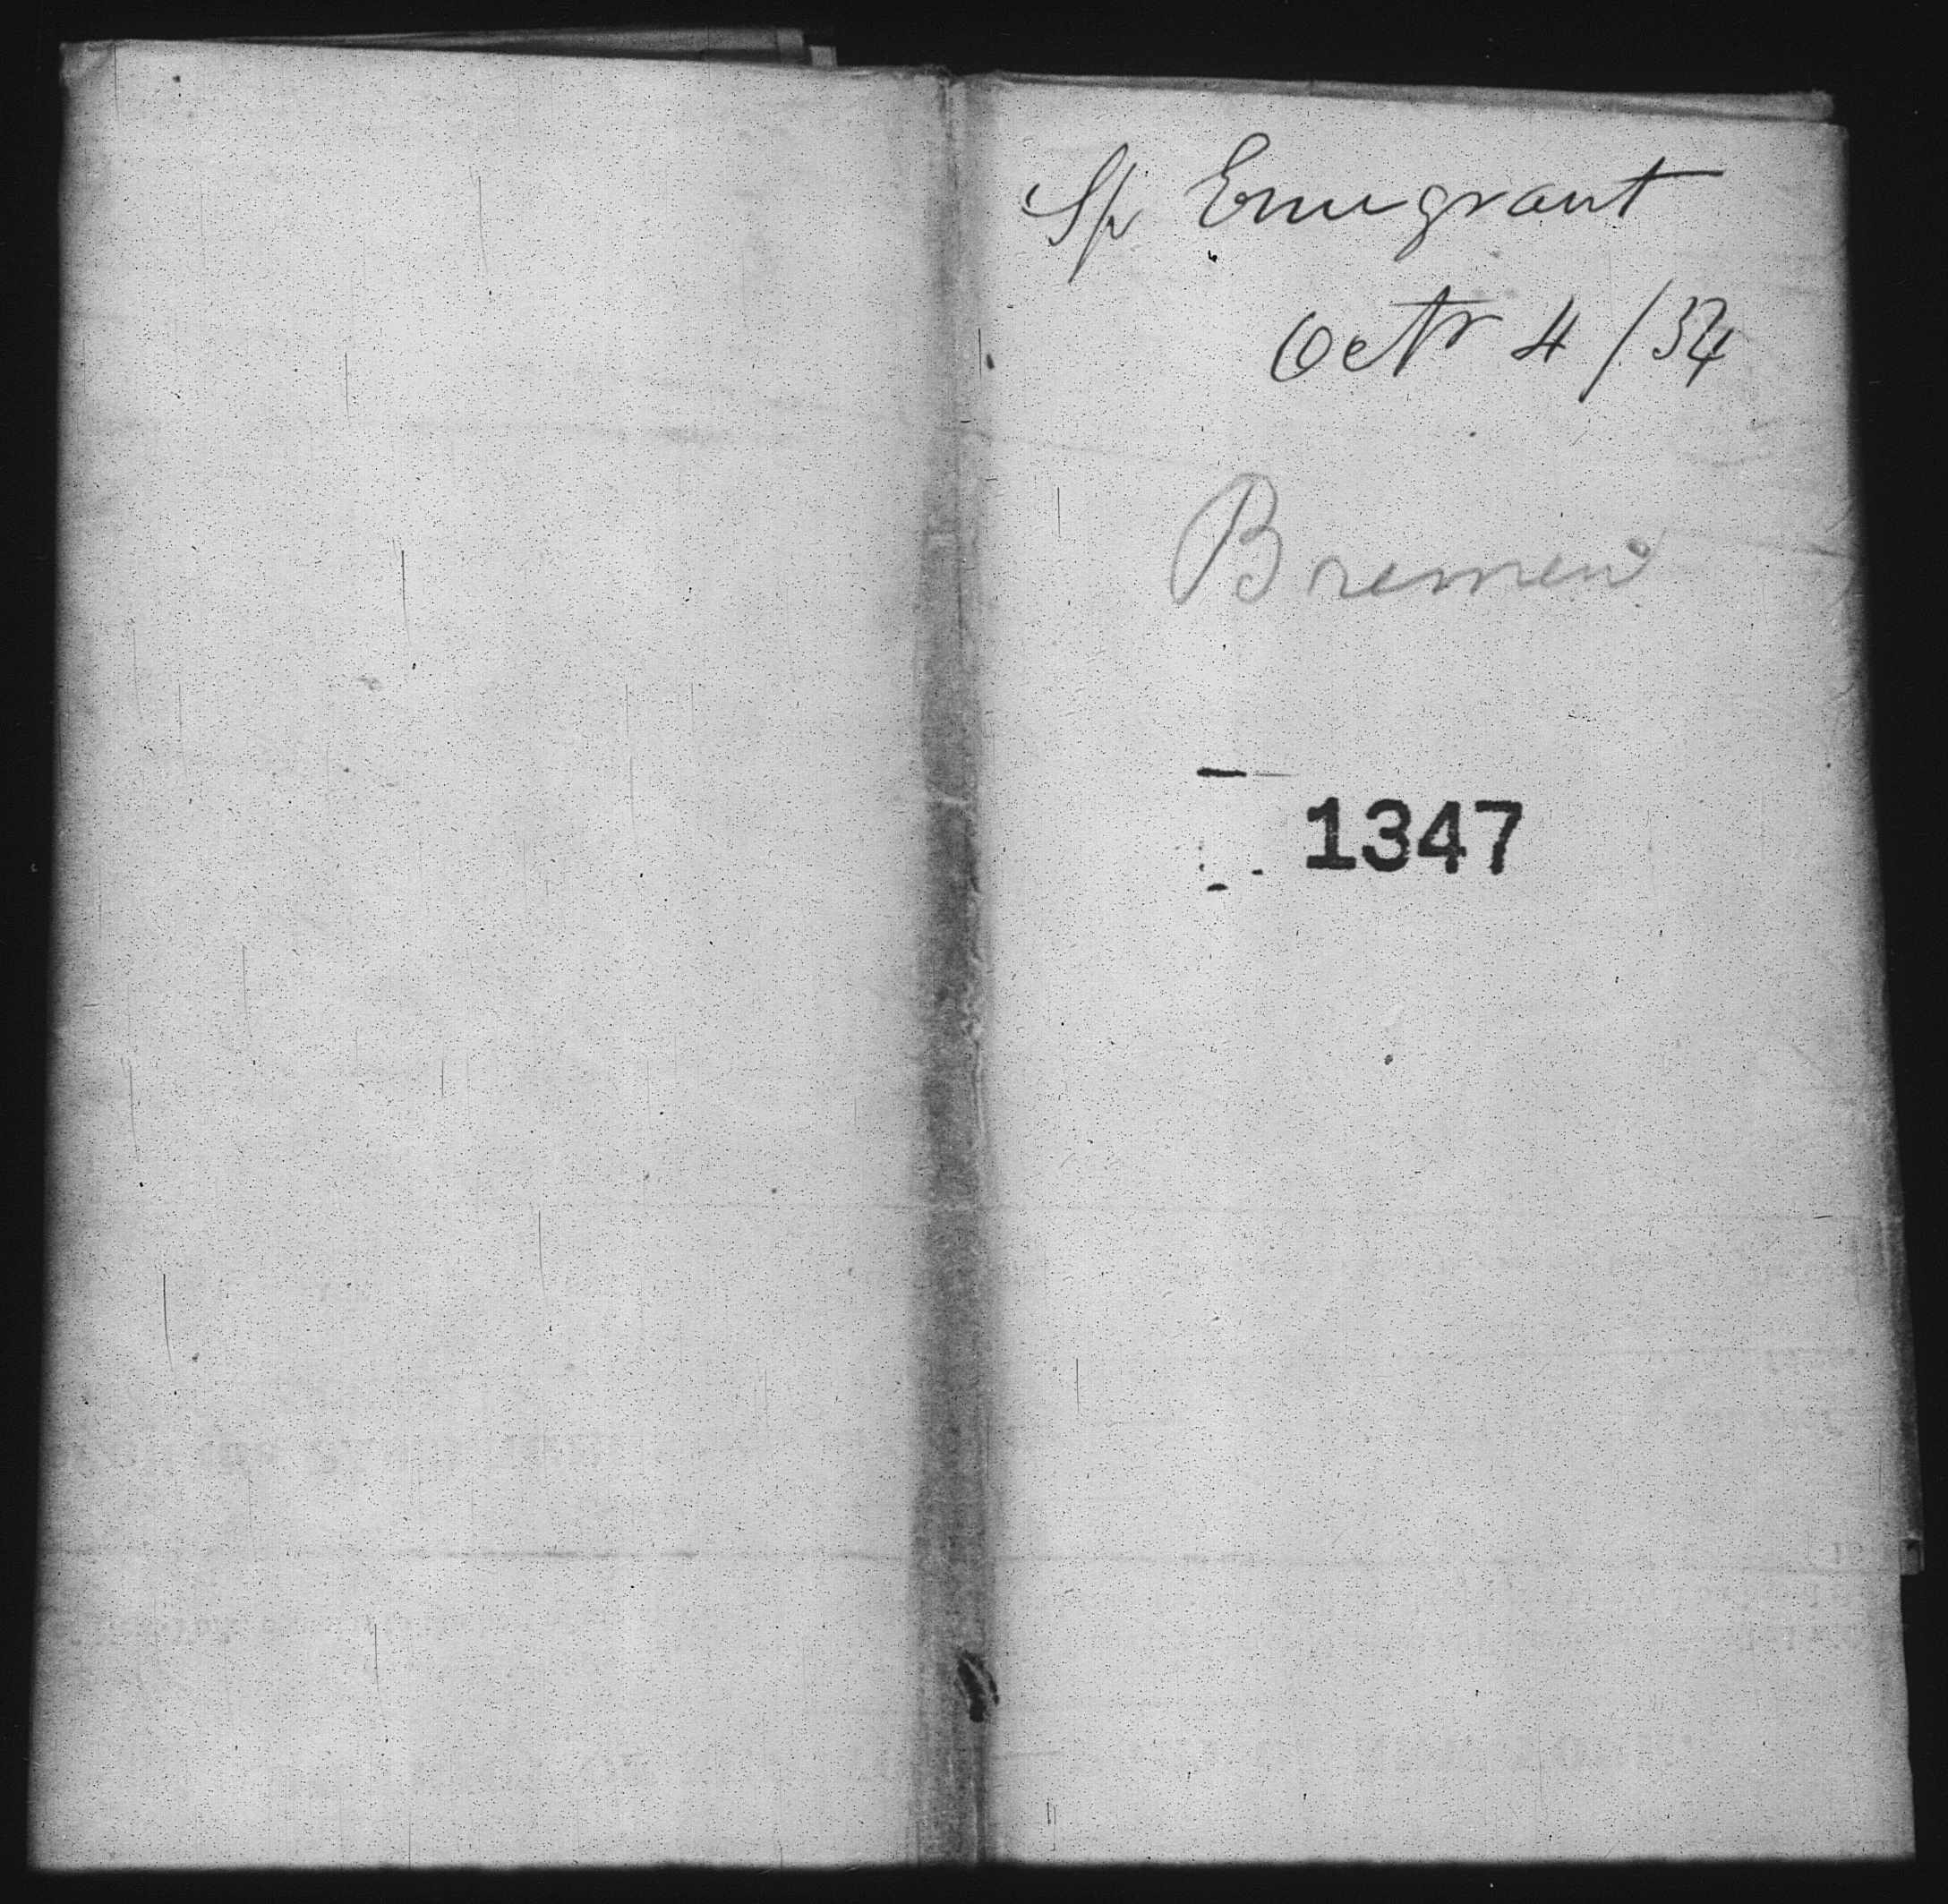 Sp Emigrant
Octr 4 /54
Bremen
1347